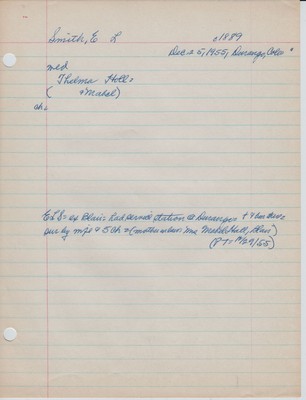 Smith, E L c1889
Dec 25, 1955, Durango, Colo
med
Thelma Hall
( Mabel)
ch.
ELS = ex Blair had service station @ Durango +
sur by wife & 5 ch = (mother-in-law Mrs Mabel Hall, Blair)
(PT = 12/29/55)